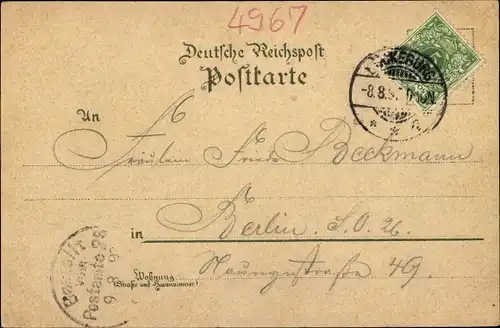 4967
Deutsche Reichspost
Postkarte
BÜCKEBURG
-8.8.9
An
Fräulein Frieda Beckmann
in Berlin S.O. 26.
Naunynstraße 49.
Wohnung
(Straße und Hausnummer)
Bestellt
vom
Postamte 26
9 8 9